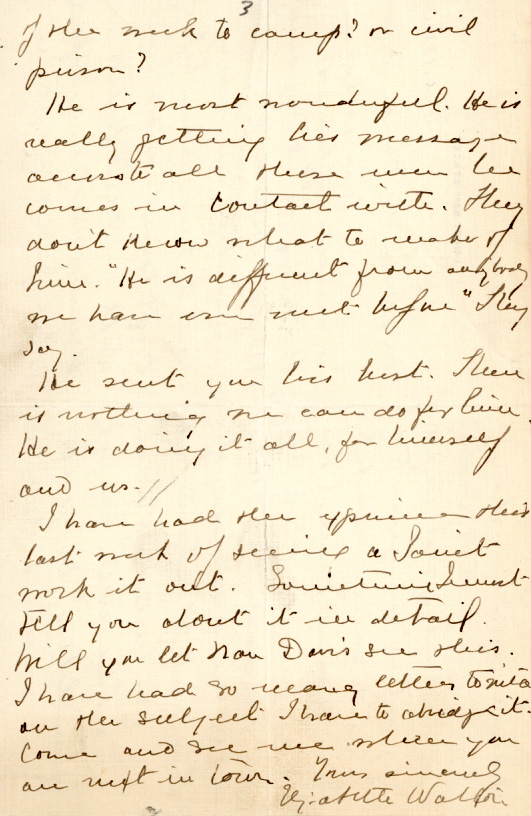 3
of the week to camp? or civil
prison?
He is most wonderful. He is
really getting his message
across to all these men he
comes in contact with. They
don't know what to make of
him. "He is different from anybody
we have ever met before" they
say.
He sent you his best. There
is nothing we can do for him.
He is doing it all, for himself
and us.//
I have had the experience this
last week of seeing a Soviet
work it out. Sometime I must
tell you about it in detail.
Will you let Davis see this.
I have had so many letters to write
on the subject I have to abridge it.
Come and see me when you
are next in town. Yours sincerely